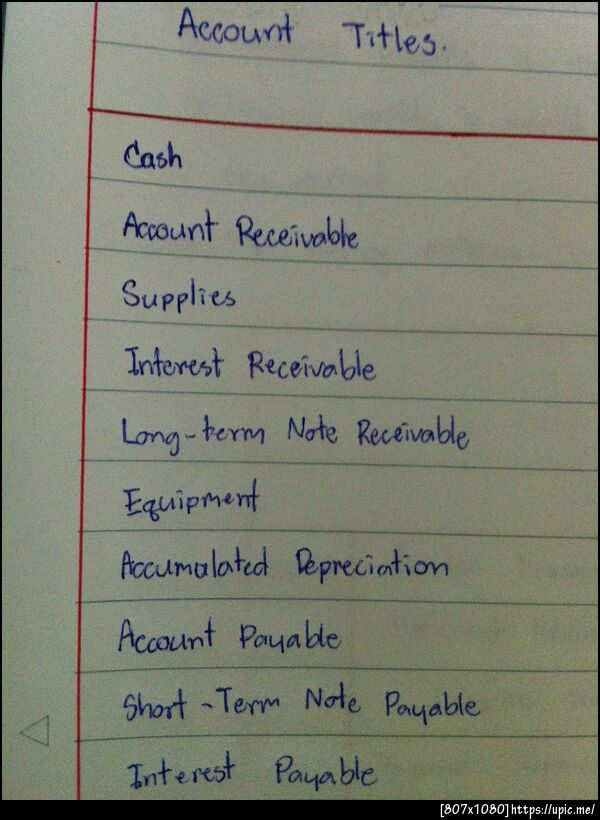 Account Titles.
Cash
Account Receivable
Supplies
Interest Receivable
Long-term Note Receivable
Equipment
Accumulated Depreciation
Account Payable
Short-Term Note Payable
Interest Payable
[807x1080]https://upic.me/